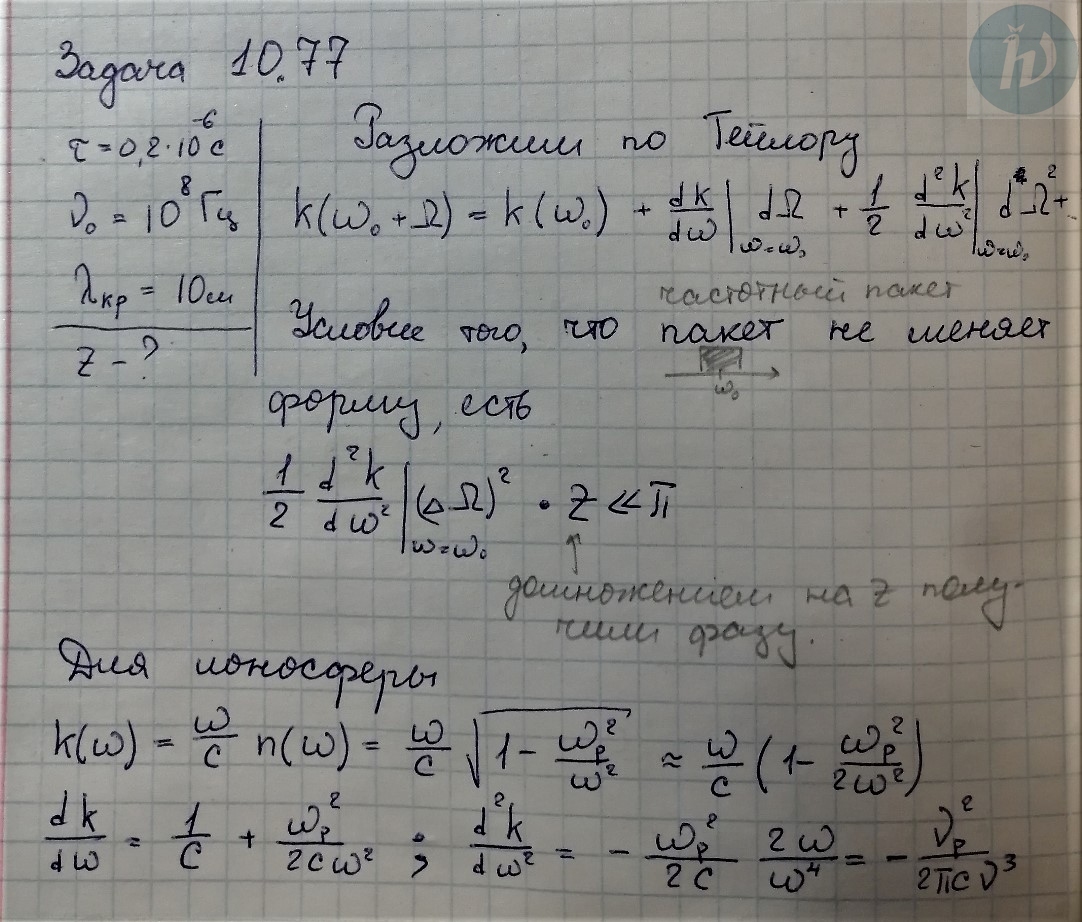 Задача 10.77
τ = 0,2·10⁻⁶ с
ν₀ = 10⁸ Гц
λкр = 10см
z - ?
Разложим по Тейлору
k(ω₀ + Ω) = k(ω₀) + dk/dω|ω=ω₀ dΩ + 1/2 d²k/dω²|ω=ω₀ dΩ² +
частотный пакет
Условие того, что пакет не меняет
ω₀
форму, есть
1/2 d²k/dω²|ω=ω₀ (ΔΩ)² · z ≪ π
домножением на z полу-
чили фазу.
Для ионосферы
k(ω) = ω/c n(ω) = ω/c √(1 - ωp²/ω²) ≈ ω/c (1 - ωp²/2ω²)
dk/dω = 1/c + ωp²/2cω² ; d²k/dω² = - ωp²/2c 2ω/ω⁴ = - νp²/2πcν³